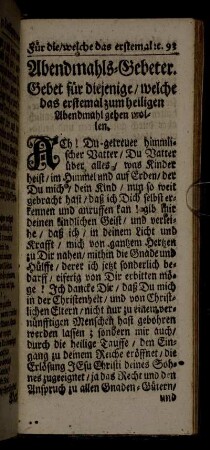 Für die/welche das erstemal ꝛc. 93
Abendmahls-Gebeter.
Gebet für diejenige/welche
das erstemal zum heiligen
Abendmahl gehen wol-
len.
ACh! Du getreuer himmli-
scher Vatter/ Du Vatter
über alles/ was Kinder
heist/ im Himmel und auf Erden/ der
Du mich/ dein Kind/ nun so weit
gebracht hast/ daß ich Dich selbst er-
kennen und anruffen kan! gib mir
deinen kindlichen Geist/ und verlei-
he/ daß ich/ in deinem Licht und
Krafft/ mich von gantzem Hertzen
zu Dir nahen/ mithin die Gnade und
Hülffe/ derer ich jetzt sonderlich be-
darff/ eifrig von Dir erbitten mö-
ge! Ich dancke Dir/ daß Du mich
in der Christenheit/ und von Christ-
lichen Eltern/ nicht nur zu einem ver-
nünfftigen Menschen hast gebohren
werden lassen/ sondern mir auch/
durch die heilige Tauffe/ den Ein-
gang zu deinem Reiche eröffnet/ die
Erlösung JEsu Christi deines Soh-
nes zugeeignet/ ja das Recht und den
Anspruch zu allen Gnaden-Gütern/
und